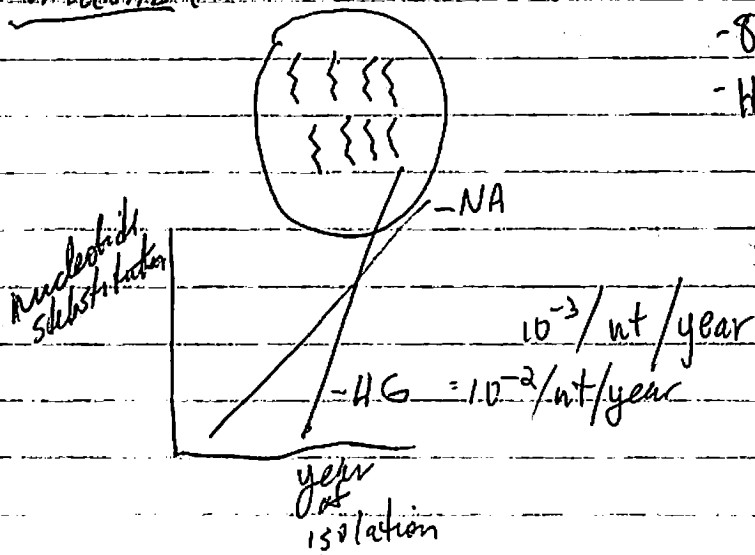 -8
-H
-NA
nucleotide
substitution
10⁻³/nt/year
-HG = 10⁻²/nt/year
year
of
isolation